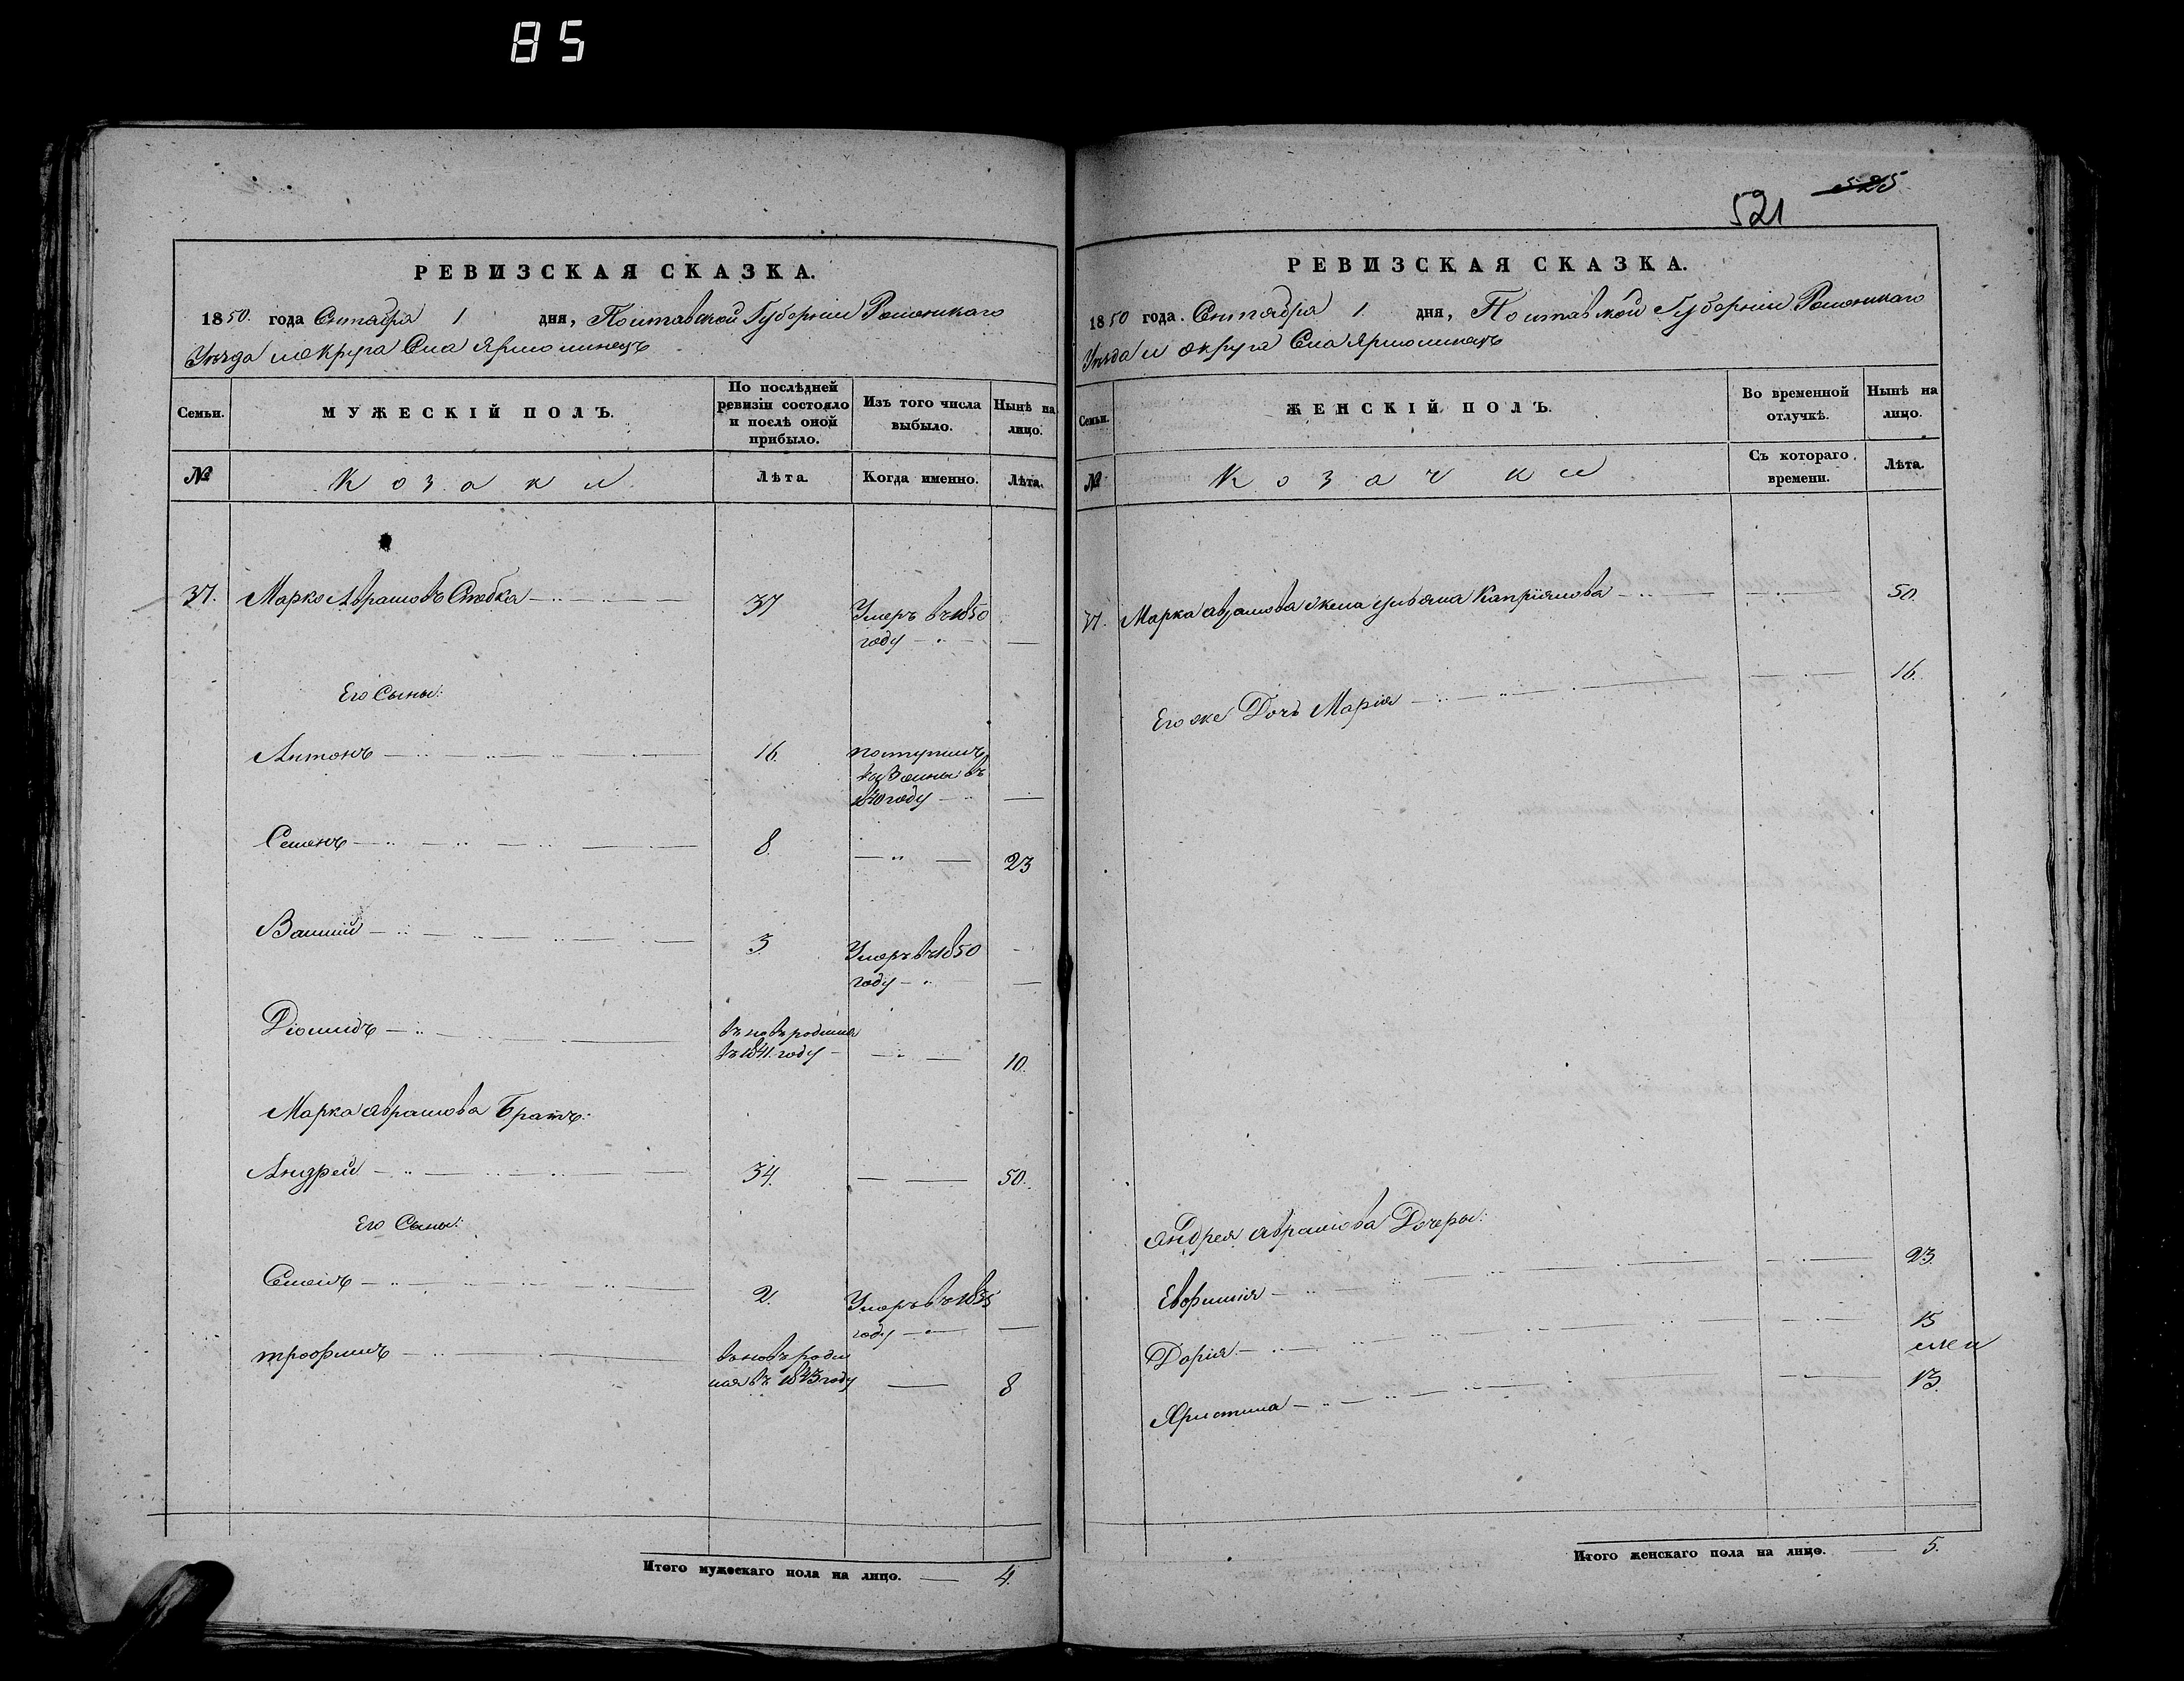 85
РЕВИЗСКАЯ СКАЗКА.
1850. года Сентября 1 дня, Полтавской Губерніи Роменского
Уѣзда и округа Села Ярмолинецъ
Семьи. МУЖЕСКІЙ ПОЛЪ. По послѣдней ревизіи состояло и послѣ оной прибыло. Изъ того числа выбыло. Нынѣ на лицо.
№ Козаки Лѣта. Когда именно. Лѣта.
37. Марко Аврамовъ 37 Умеръ въ 1850
году
Его Сыны:
Антонъ 16. поступилъ
въ
1840 году
Семенъ 8. 23
Василій 3. Умеръ въ 1850
году
Діомидъ въновь родился
въ 1841. году 10.
Марка Аврамова Братъ:
Андрей 34. 50.
Его Сыны:
Семенъ 2. Умеръ въ 1835
году
трофимъ въновь роди
въ 1843 году 8
Итого мужескаго пола на лицо. 4.
525
521
РЕВИЗСКАЯ СКАЗКА.
1850 года. Сентября 1 дня, Полтавской Губерніи Роменского
Уѣзда и округа Села Ярмолинецъ
Семьи. ЖЕНСКІЙ ПОЛЪ. Во временной отлучкѣ. Нынѣ на лицо.
№ Козачки Съ котораго времени. Лѣта.
37. Марка Аврамова жена Ульяна Капріянова 50.
Его же Дочь Марія 16.
Андрея Аврамова Дочеры:
Евфимія 23.
Дарія 15
Христина 13.
Итого женскаго пола на лицо. 5.